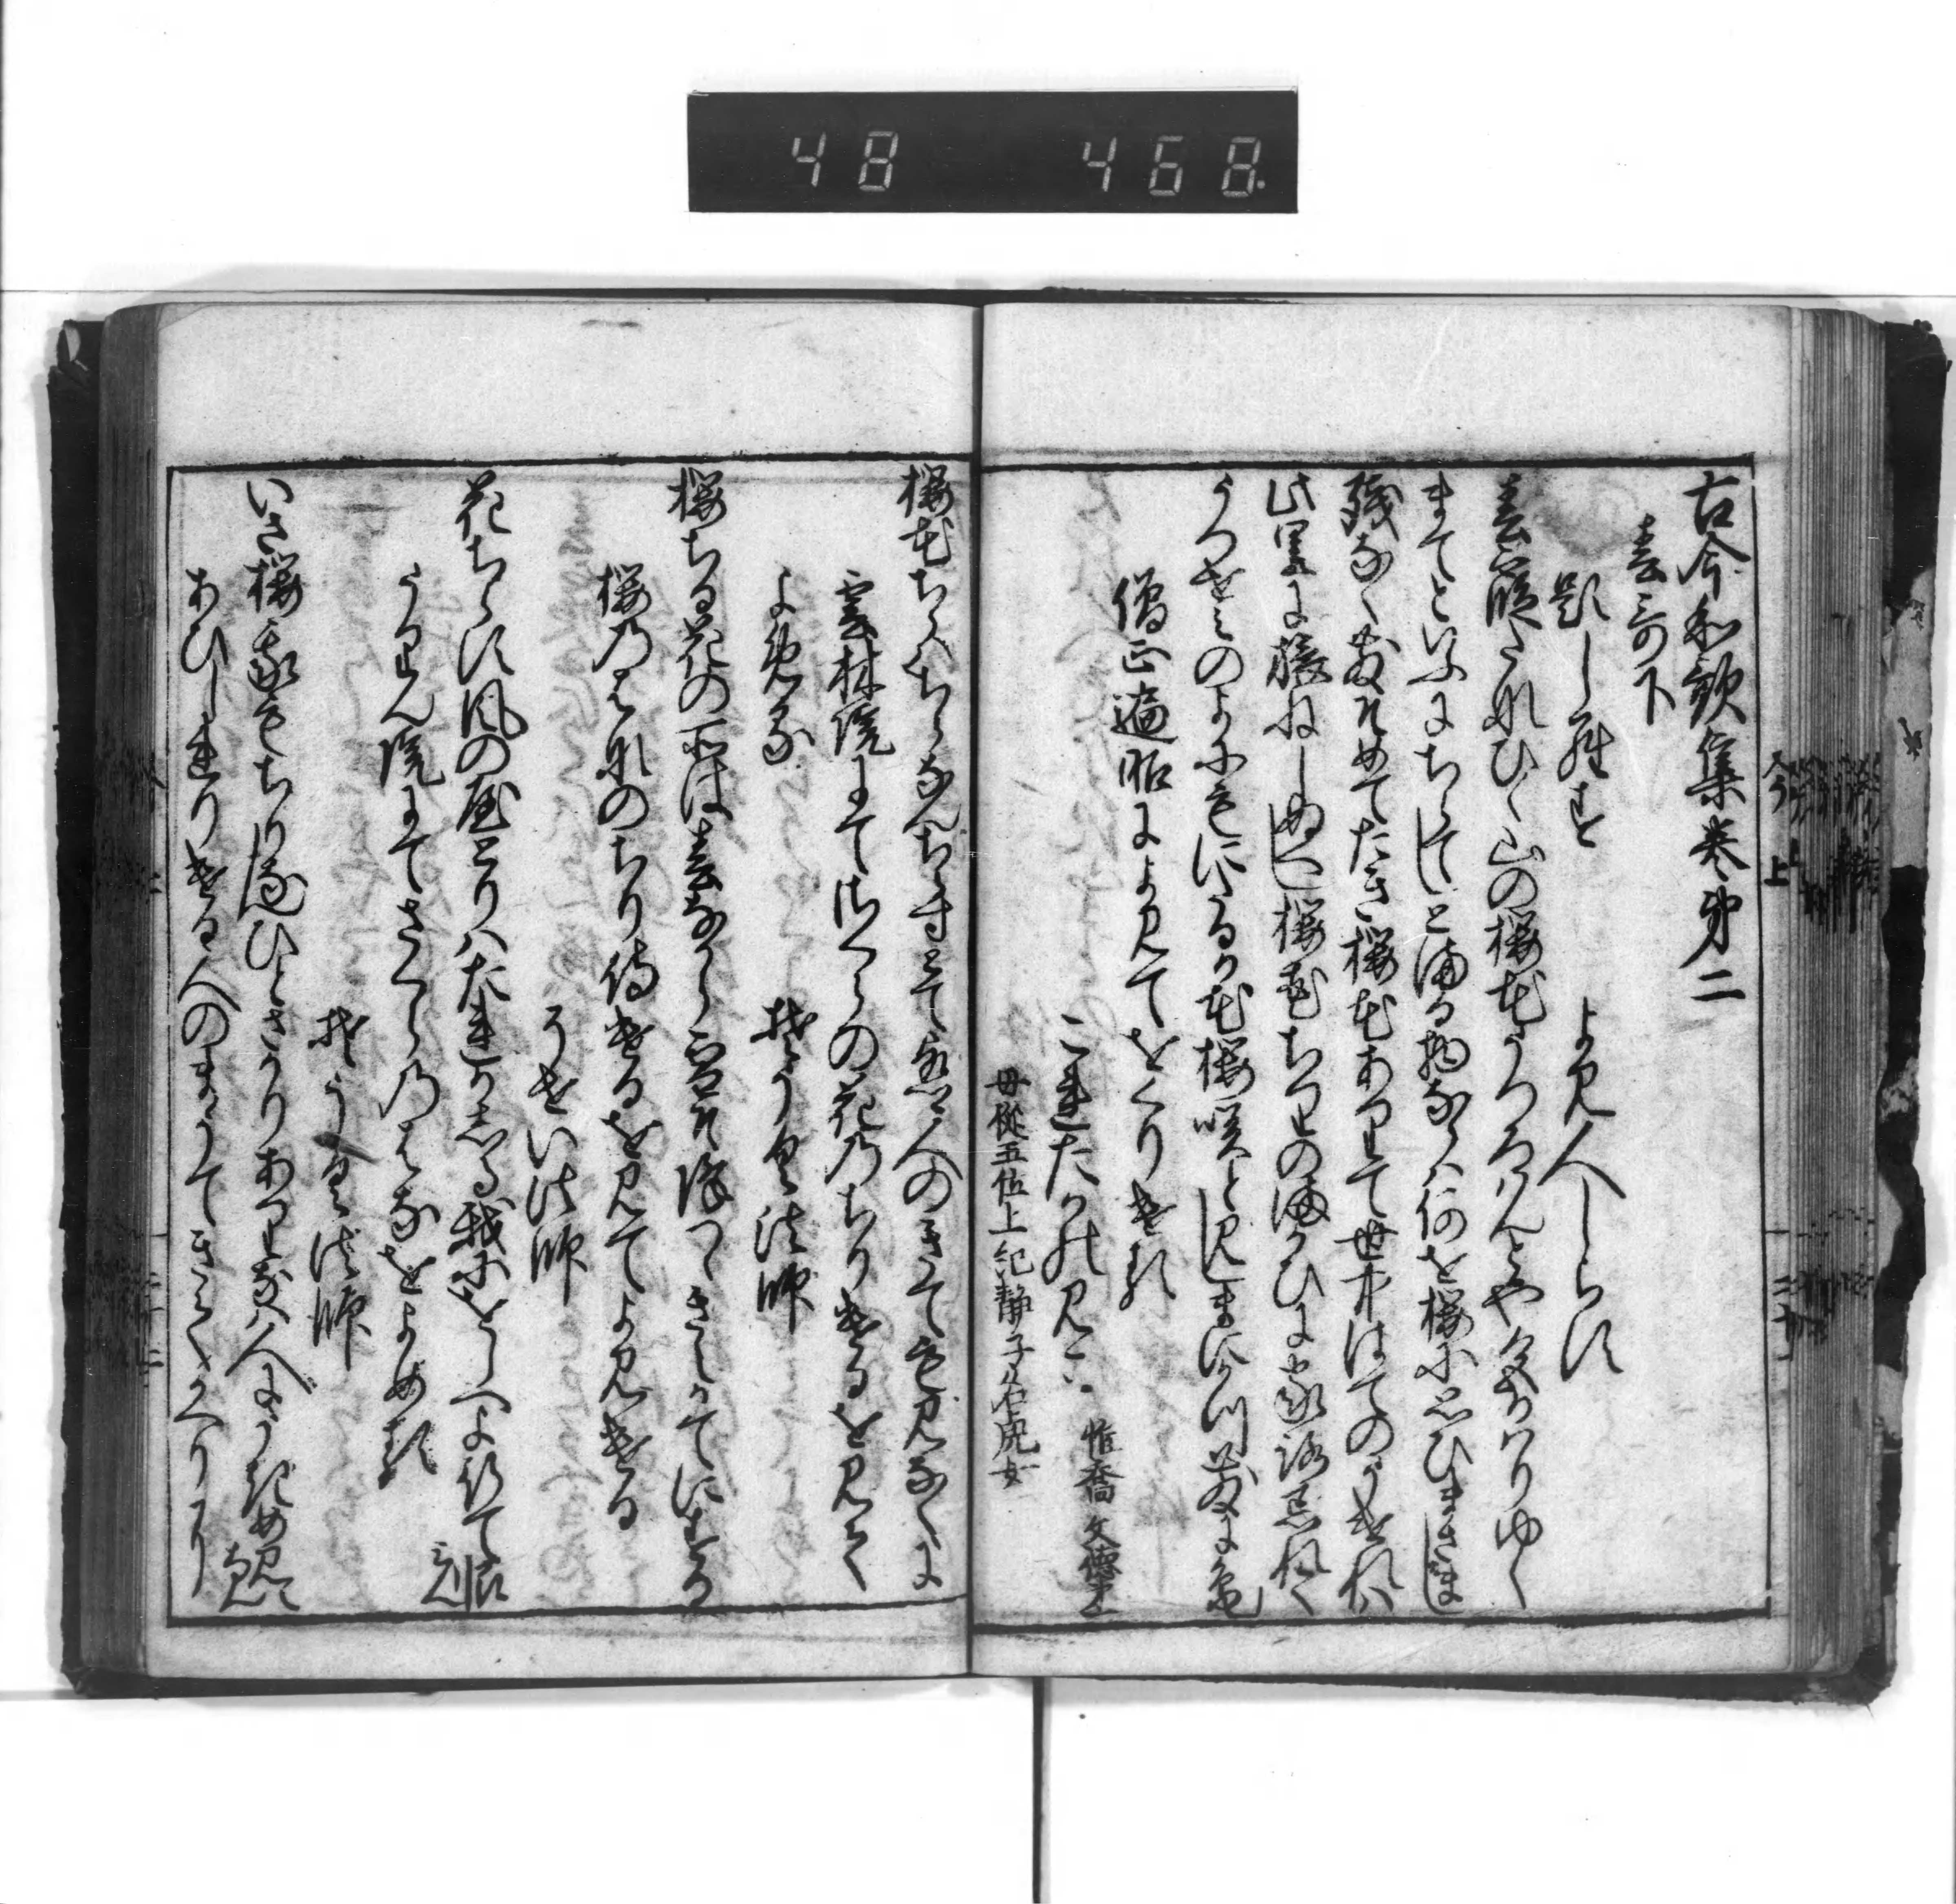 48 468
古今和歌集巻第二
春哥下
題しらす よみ人しらす
春霞たなひく山の桜花うつろはんとや色かはりゆく
まてといふにちらてしとまる物ならは何を桜に思ひまさまし
残なくちるそめてたき桜花ありて世中はてのうけれは
此里に旅ねしぬへし桜花ちりのまかひに家路忘れて
うつせみのよにもにたるか花桜咲とみしまにかつ散にけり
僧正遍昭によみてをくりける
これたかのみこ 惟喬 文徳第一
母従五位上紀静子名虎女
桜花ちらはちらなんちらすとて古郷人のきても見なくに
雲林院にてさくらの花のちりけるを見て
よめる そうく法師
桜ちる花の所は春なから雪そ降つゝきえかてにする
桜のはなのちり侍けるを見てよみける
そせい法師
花ちらす風のやとりはたれかしる我にをしへよ行て恨みん
うりん院にてさくらのはなをよめる
そうく法師
いさ桜我もちりなんひとさかりありなは人にうきめ見えなん
あひしれりける人のまうてきてかへりに